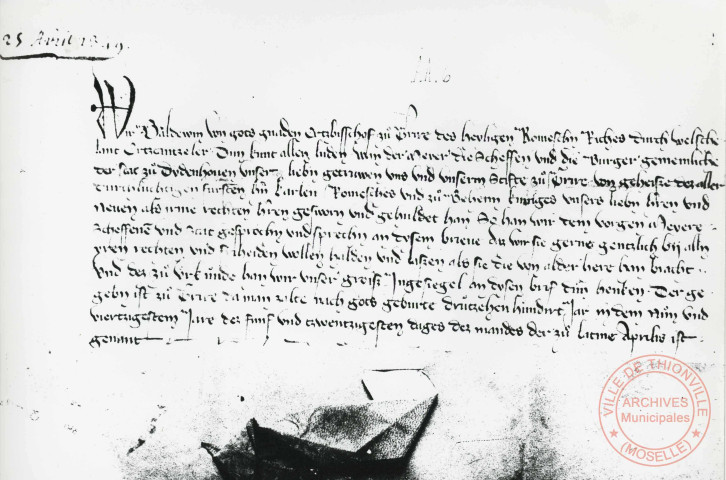 25 Avril 1349.
Wir Baldewin von gots gnaden Ertzbisschof zu Trire des heyligen Romeschn Riches durch welsche
lant Ertzcantzeler Dun kunt allen luden Wan der Meyer die Scheffen und die Burger gemeinliche
der stat zu Dydenhoven unser liebn getruwen uns und unserm Stifte zu Trire von geheisse des aller
durchluchtigen fursten hern Karlen Romesches und zu Beheim kuniges unsers liebn hren und
neuen als irme rechten hren gesworn und gehuldet han So han wir dem vorgen Meyere
Scheffene und Stat gesprochn und sprechin an dysem brieve da wir sie gerne gentzlich bij alln
yren rechten und friheiden wollen halden und laszen als sie die von alder here han bracht
Und des zu urkunde han wir unser greist Ingesiegel an dysen brief dun henken Der ge
gebn ist zu Trire da man zalte nach gots geburte drutzehen hundirt Jar in dem Nun und
viertzigestem Jare des funf und tzwentzigesten dages des mandes der zu latine Aprilis ist
genant
VILLE DE THIONVILLE
ARCHIVES
Municipales
(MOSELLE)